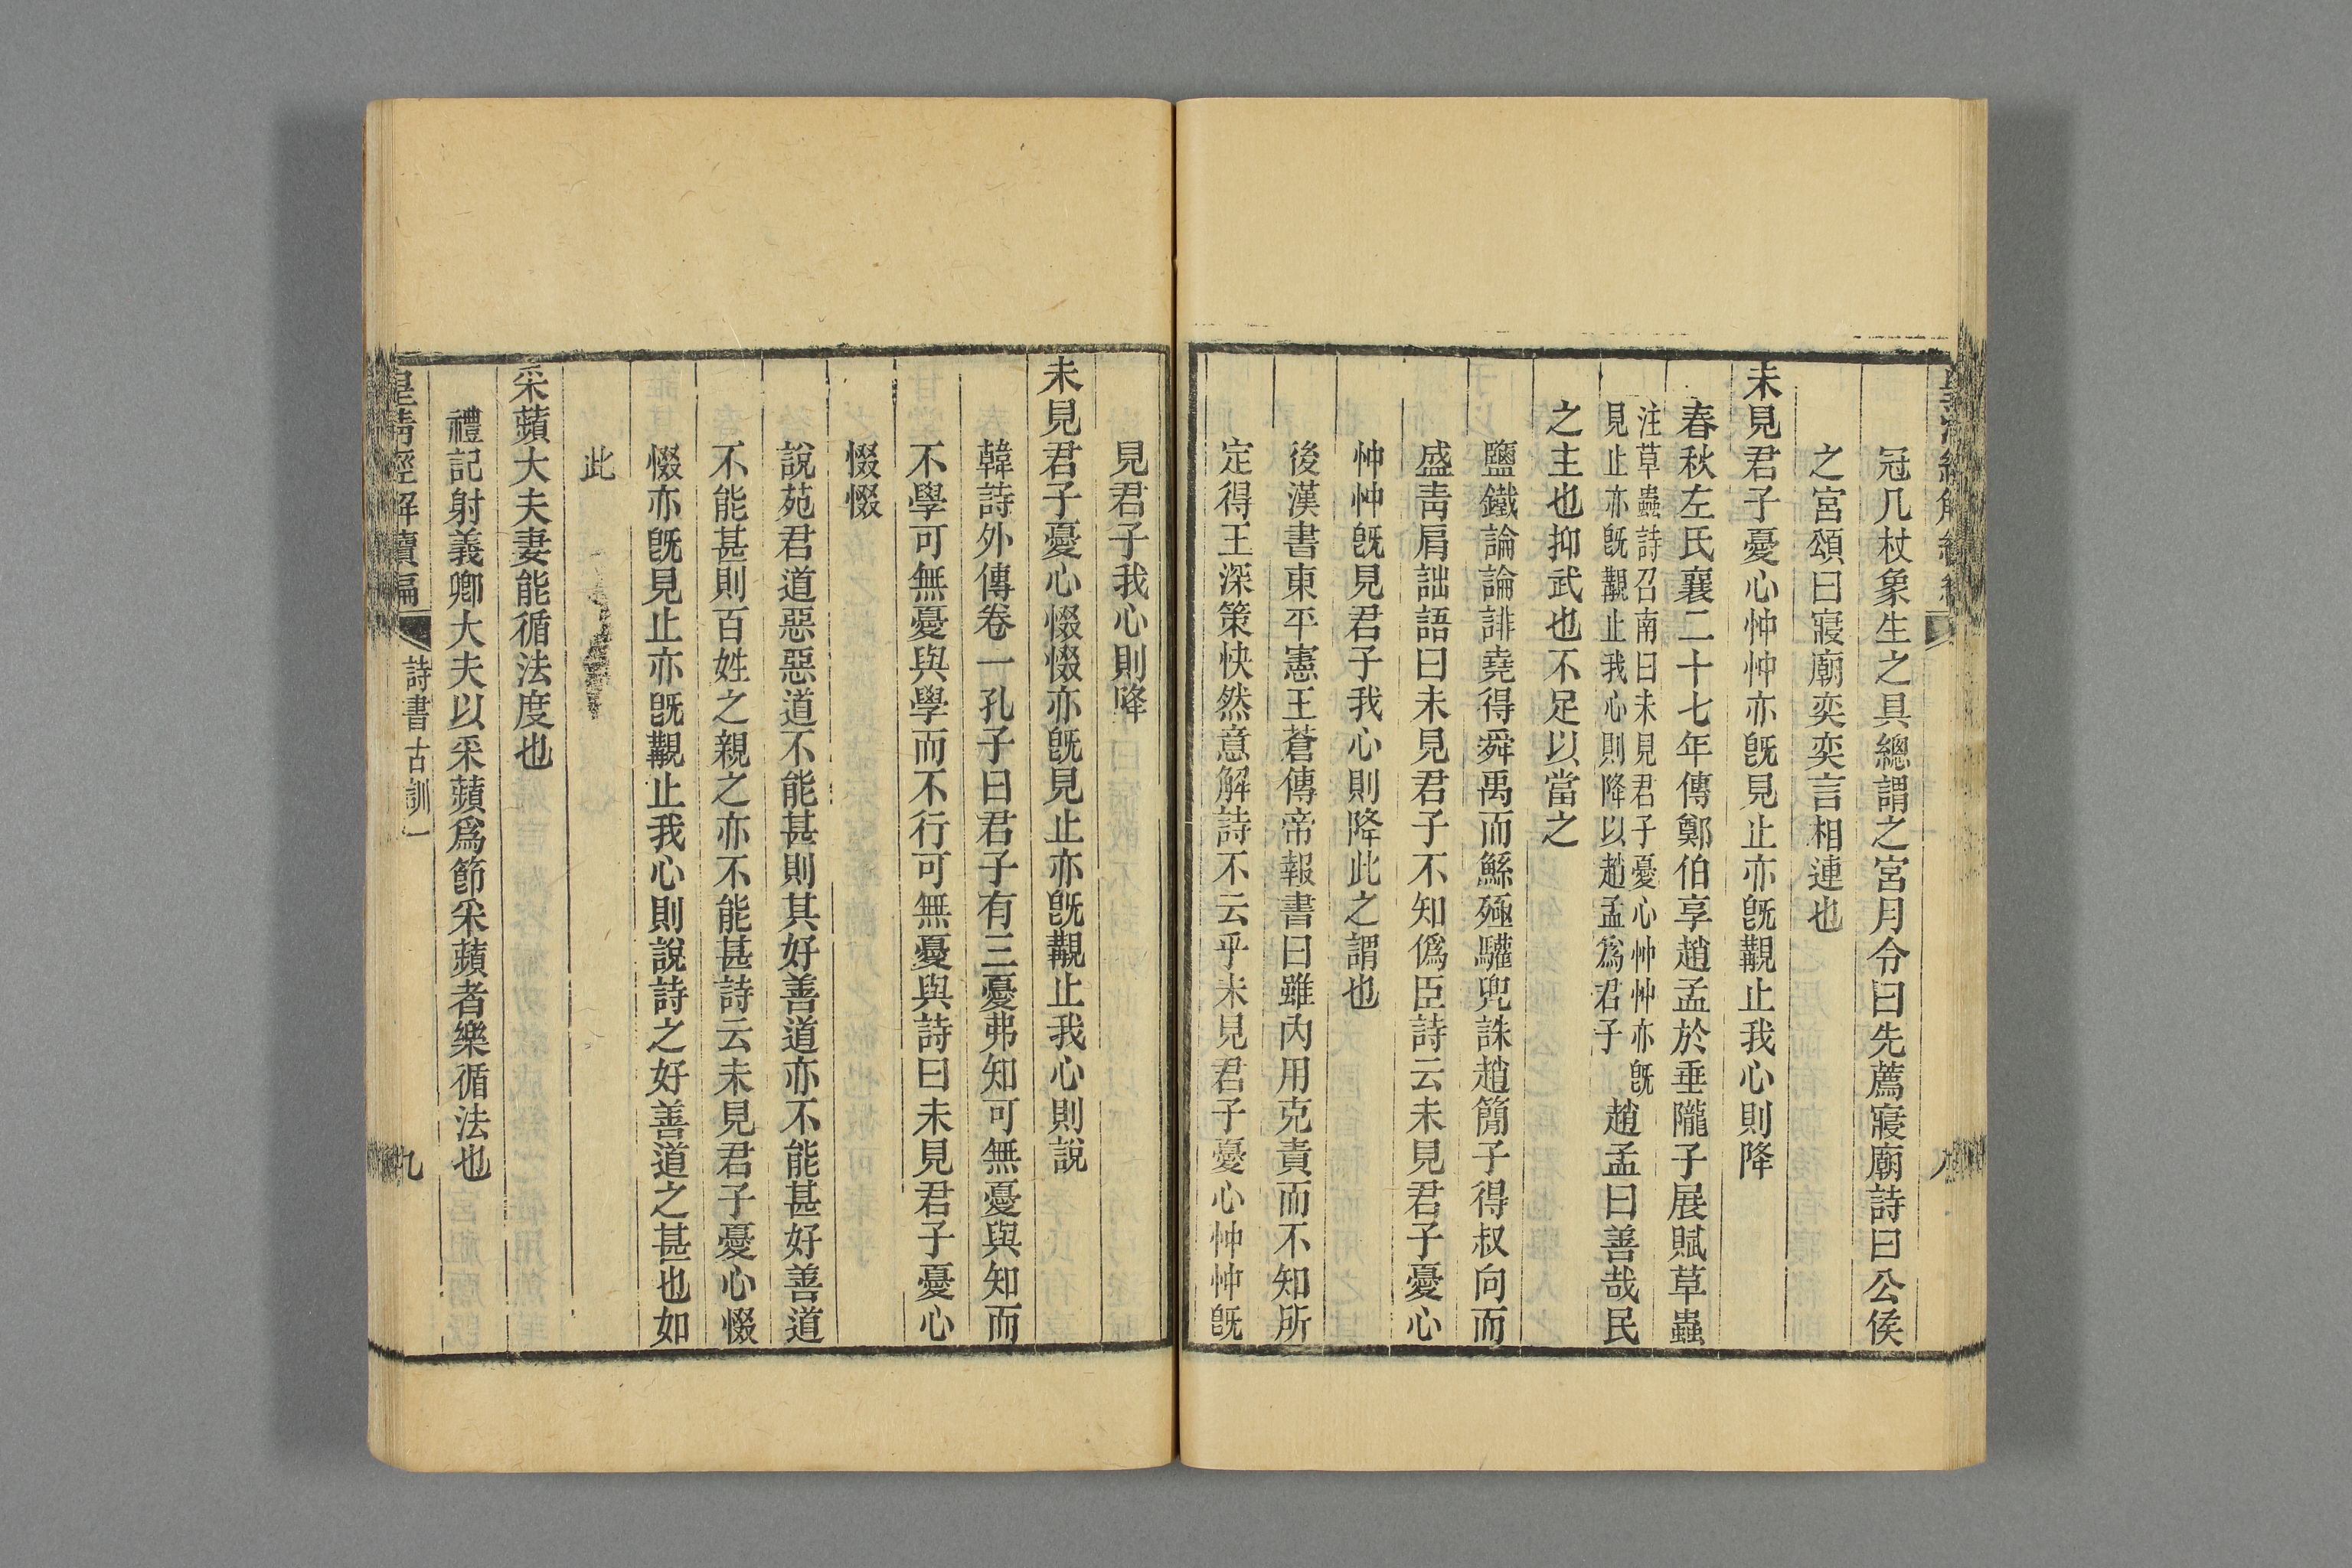 冠几杖象生之具總謂之宮月令曰先薦寢廟詩曰公侯
之宮頌曰寢廟奕奕言相連也
未見君子憂心忡忡亦旣見止亦旣覯止我心則降
春秋左氏襄二十七年傳鄭伯享趙孟於垂隴子展賦草蟲
注草蟲詩召南曰未見君子憂心忡忡亦旣
見止亦旣覯止我心則降以趙孟爲君子
趙孟曰善哉民
之主也抑武也不足以當之
鹽鐵論論誹堯得舜禹而鯀殛驩兜誅趙簡子得叔向而
盛靑肩詘語曰未見君子不知僞臣詩云未見君子憂心
忡忡旣見君子我心則降此之謂也
後漢書東平憲王蒼傳帝報書曰雖內用克責而不知所
定得王深策快然意解詩不云乎未見君子憂心忡忡旣
見君子我心則降
未見君子憂心惙惙亦旣見止亦旣覯止我心則說
韓詩外傳卷一孔子曰君子有三憂弗知可無憂與知而
不學可無憂與學而不行可無憂與詩曰未見君子憂心
惙惙
說苑君道惡惡道不能甚則其好善道亦不能甚好善道
不能甚則百姓之親之亦不能甚詩云未見君子憂心惙
惙亦旣見止亦旣覯止我心則說詩之好善道之甚也如
此
采蘋大夫妻能循法度也
禮記射義卿大夫以采蘋爲節采蘋者樂循法也
皇淸經解續編
詩書古訓一
九